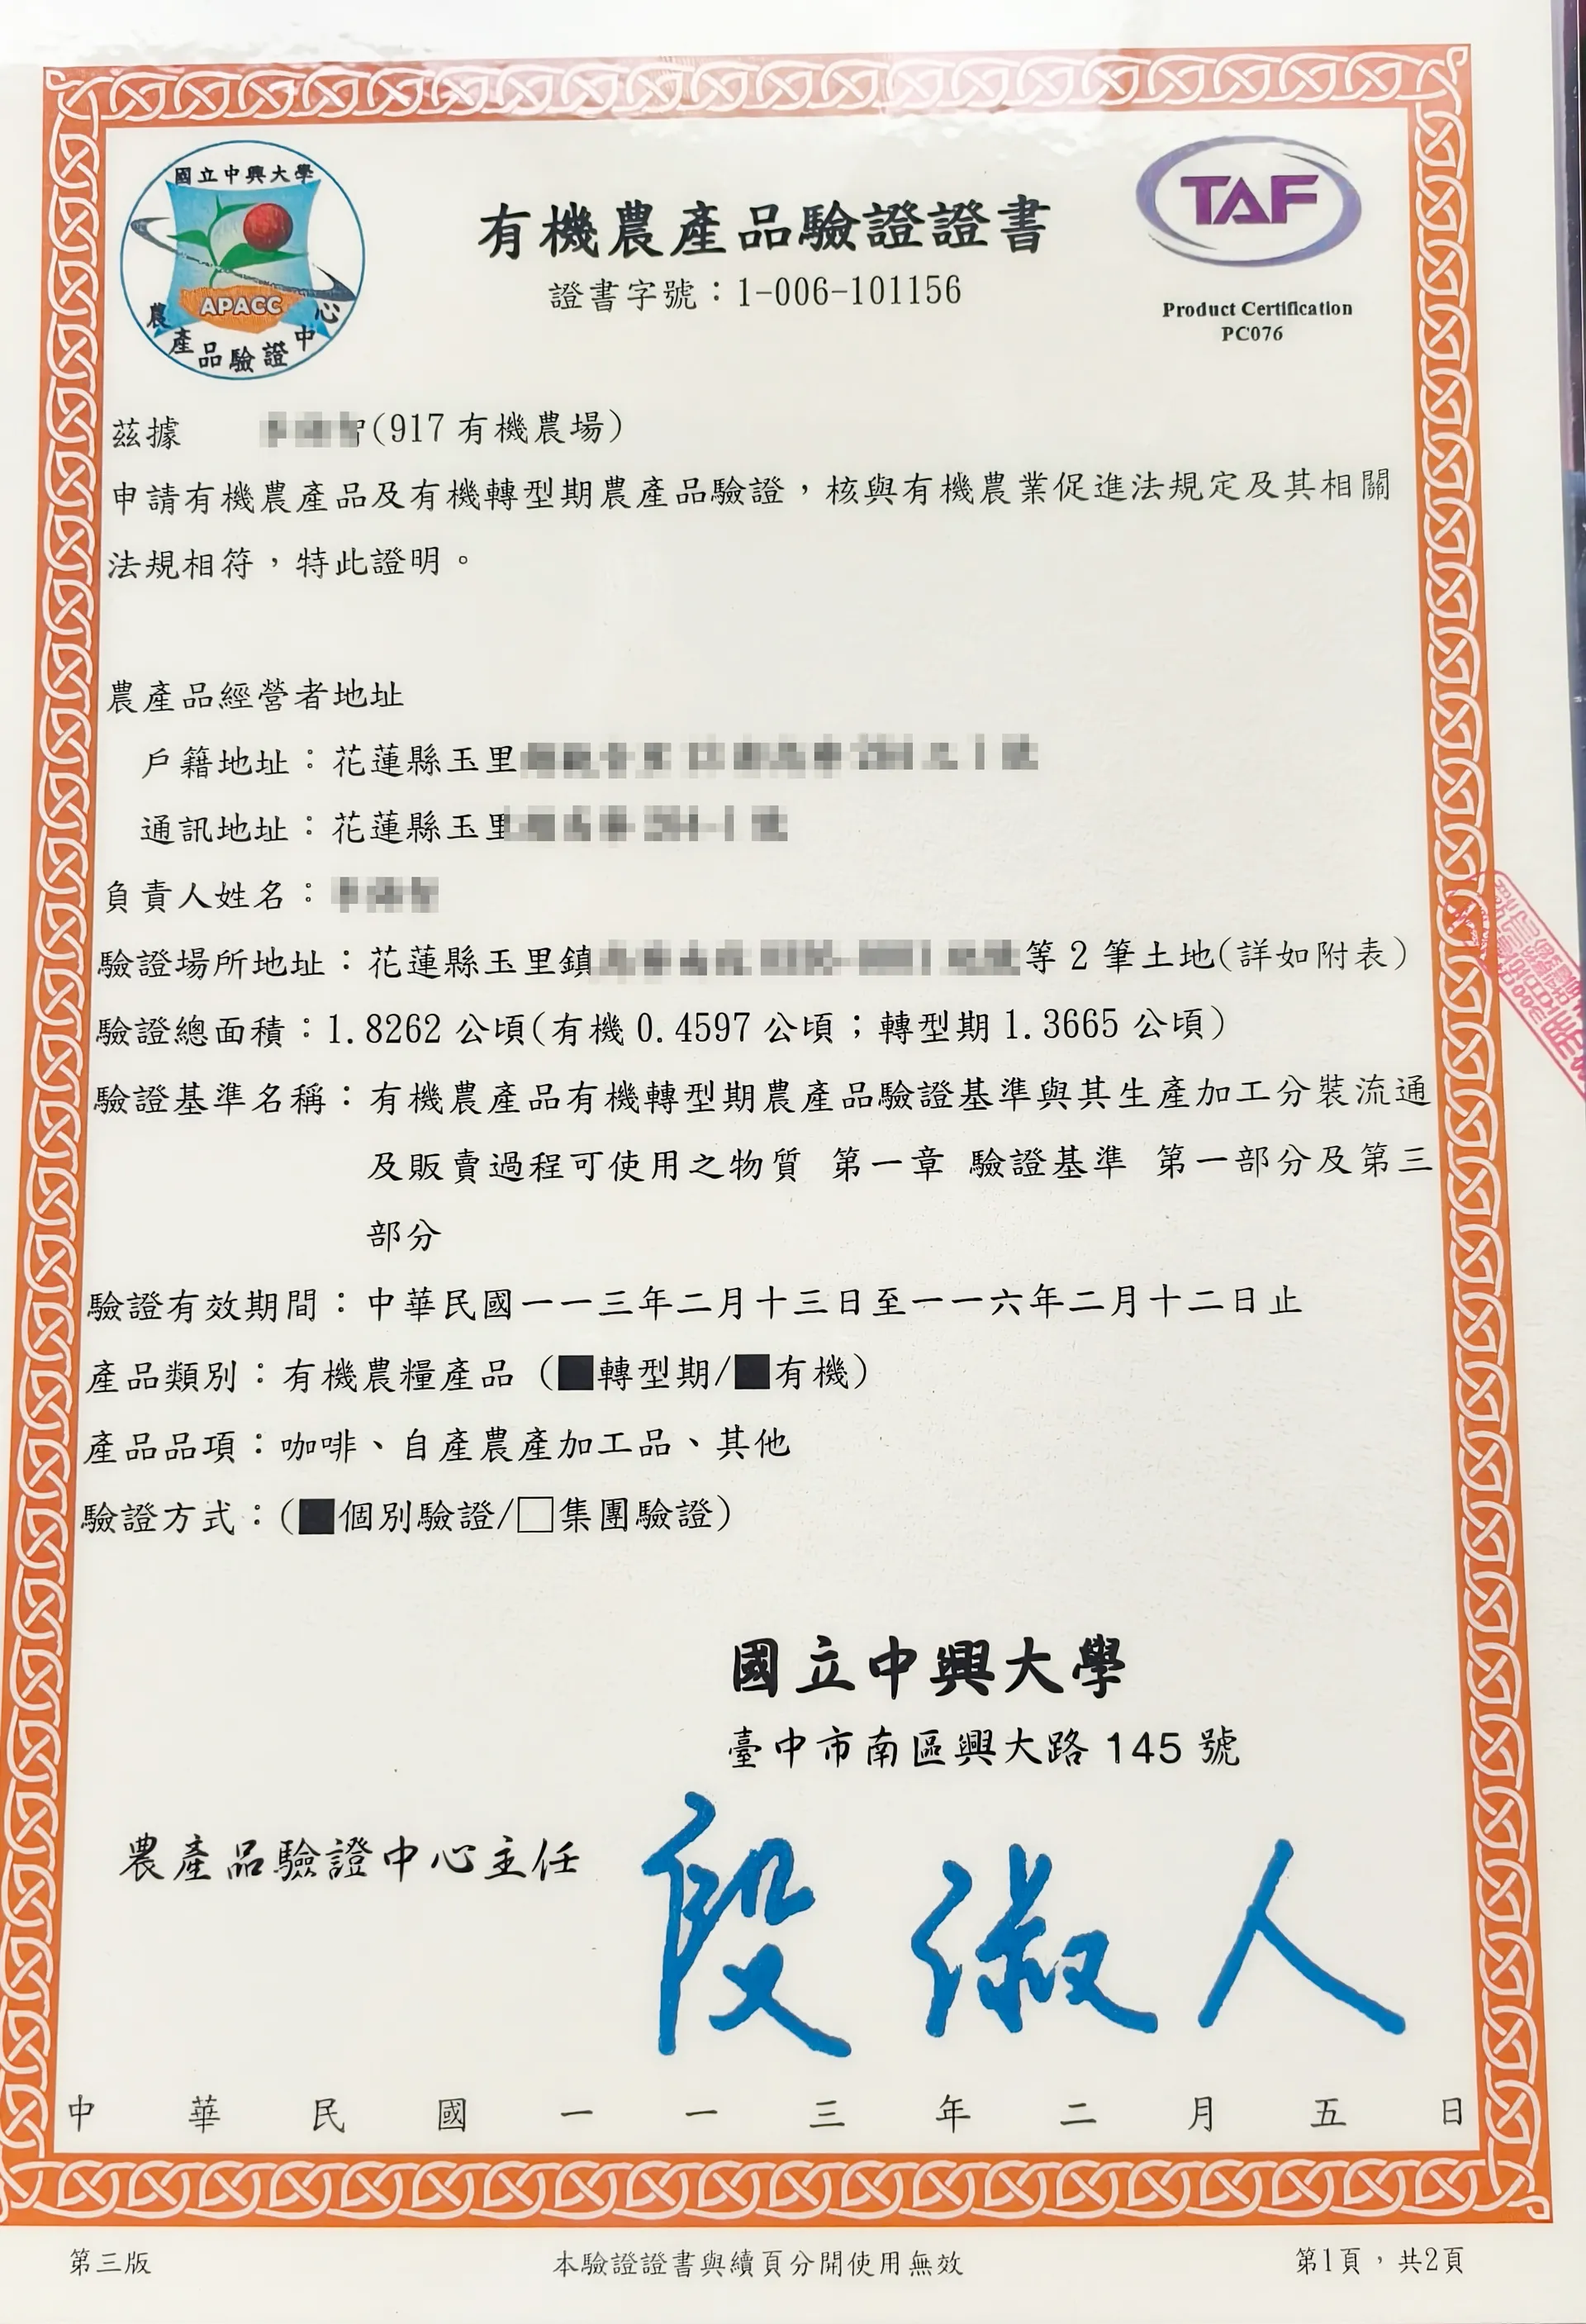 國立中興大學
APACC
農產品驗證中心
有機農產品驗證證書
證書字號：1-006-101156
TAF
Product Certification
PC076
茲據 (917 有機農場)
申請有機農產品及有機轉型期農產品驗證，核與有機農業促進法規定及其相關
法規相符，特此證明。
農產品經營者地址
戶籍地址：花蓮縣玉里
通訊地址：花蓮縣玉里
負責人姓名：
驗證場所地址：花蓮縣玉里鎮 等 2 筆土地(詳如附表)
驗證總面積：1.8262 公頃(有機 0.4597 公頃；轉型期 1.3665 公頃)
驗證基準名稱：有機農產品有機轉型期農產品驗證基準與其生產加工分裝流通
及販賣過程可使用之物質 第一章 驗證基準 第一部分及第三
部分
驗證有效期間：中華民國一一三年二月十三日至一一六年二月十二日止
產品類別：有機農糧產品 (■轉型期/■有機)
產品品項：咖啡、自產農產加工品、其他
驗證方式：(■個別驗證/□集團驗證)
國立中興大學
臺中市南區興大路 145 號
農產品驗證中心主任 段淑人
中華民國一一三年二月五日
第三版 本驗證證書與續頁分開使用無效 第1頁，共2頁